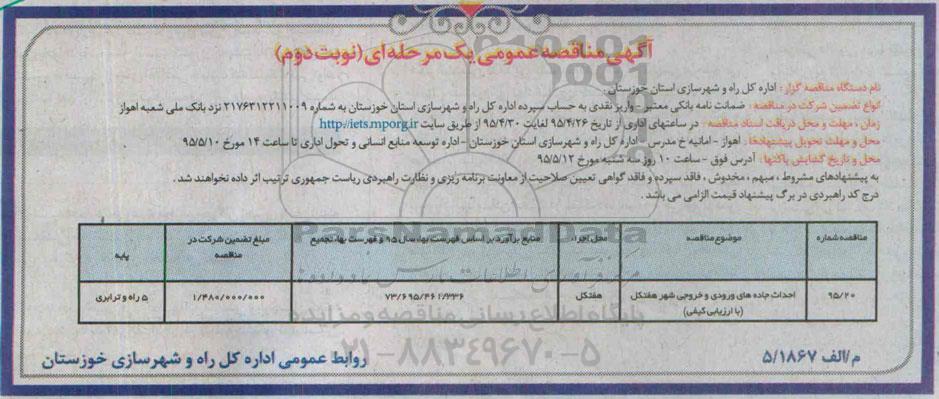 آگهی مناقصه عمومی یک مرحله ای (نوبت دوم)
نام دستگاه مناقصه گزار : اداره کل راه و شهرسازی استان خوزستان.
انواع تضمین شرکت در مناقصه : ضمانت نامه بانکی معتبر - واریز نقدی به حساب سپرده اداره کل راه و شهرسازی استان خوزستان به شماره ۲۱۷۶۳۱۲۲۱۱۰۰۹ نزد بانک ملی شعبه اهواز
زمان ، مهلت و محل دریافت اسناد مناقصه : در ساعتهای اداری از تاریخ ۹۵/۴/۲۶ لغایت ۹۵/۴/۳۰ از طریق سایت http://iets.mporg.ir
محل و مهلت تحویل پیشنهادها : اهواز - امانیه خ مدرس - اداره کل راه و شهرسازی استان خوزستان - اداره توسعه منابع انسانی و تحول اداری تا ساعت ۱۴ مورخ ۹۵/۵/۱۰
محل و تاریخ گشایش پاکتها : آدرس فوق - ساعت ۱۰ روز سه شنبه مورخ ۹۵/۵/۱۲
به پیشنهادهای مشروط ، مبهم ، مخدوش ، فاقد سپرده و فاقد گواهی تعیین صلاحیت از معاونت برنامه ریزی و نظارت راهبردی ریاست جمهوری ترتیب اثر داده نخواهد شد .
درج کد راهبردی در برگ پیشنهاد قیمت الزامی می باشد .
مناقصه شماره موضوع مناقصه محل اجراء منابع برآورد بر اساس فهرست بهاء سال ۹۵ و فهرست بهاء تجمیع مبلغ تضمین شرکت در مناقصه پایه
۹۵/۲۰ احداث جاده های ورودی و خروجی شهر هفتکل (با ارزیابی کیفی) هفتکل ۷۳/۶۹۵/۴۶۱/۳۳۶ ۱/۴۸۰/۰۰۰/۰۰۰ ۵ راه و ترابری
ParsNamadData
پایگاه اطلاع رسانی مناقصه و مزایده
۰۲۱-۸۸۳۴۹۶۷۰-۵
م/الف ۵/۱۸۶۷
روابط عمومی اداره کل راه و شهرسازی خوزستان